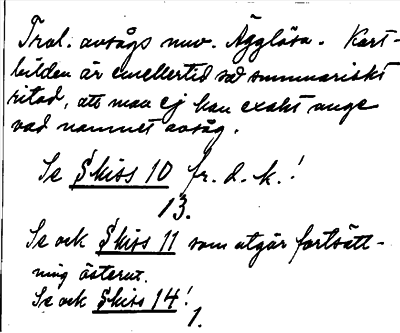 Trol. avsågs nuv. Äggläsa. Kart-
bilden är emellertid så summariskt
ritad, att man ej kan exakt ange
vad namnet avsåg.
Se Skiss 10 fr. d. k.!
13.
Se ock Skiss 11 som utgör fortsätt-
ning österut.
Se ock Skiss 14!
1.